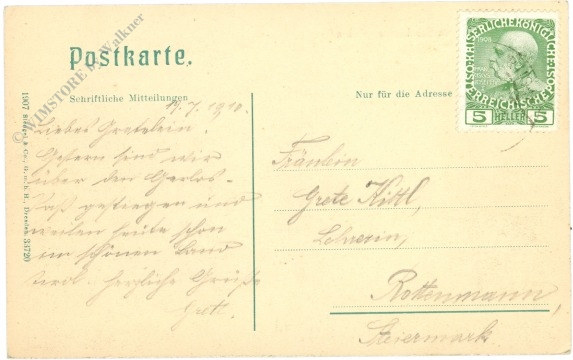 Postkarte.
Schriftliche Mitteilungen
19.7.1910.
Liebes Gretelein.
Gestern sind wir
über den Gerlos-
paß gestiegen und
weilen heute schon
im schönen Land
Tirol. Herzliche Grüße
Gretl.
Nur für die Adresse
KAISERLICHE KÖNIGLICHE
ÖSTERREICHISCHE POST
1908
5 HELLER 5
Fräulein
Grete Kittl,
Lehrerin,
Rottenmann,
Steiermark
1907 Stengel & Co., G.m.b.H., Dresden 33720
© WIMSTORE by Walkner